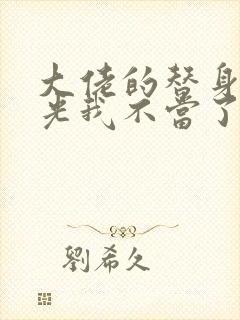 大佬的替身
光我不當了
劉希久